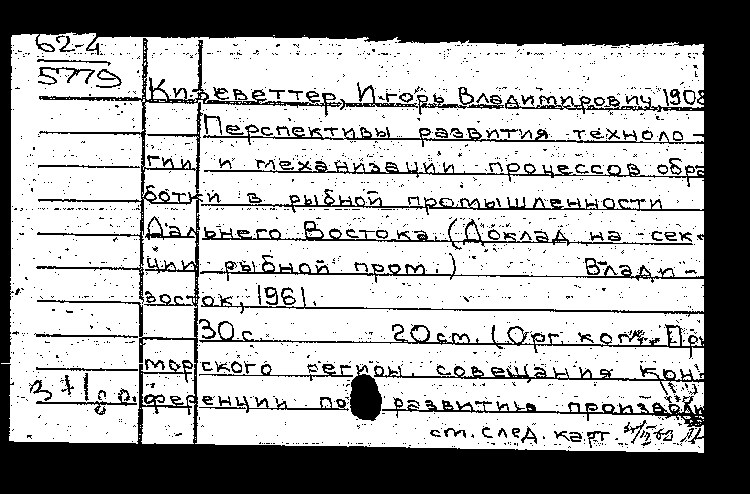 62-4
5779
Кизеветтер, Игорь Владимирович, 1908
Перспективы развития техноло-
гии и механизации процессов обра
ботки в рыбной промышленности
Дальнего Востока. (Доклад на сек-
ции рыбной пром.) Влади-
восток, 1961.
30 с. 20 см. (Орг. ком. При
морского регион. совещания кон-
ференции по развитию произвοди
ст. след. карт.